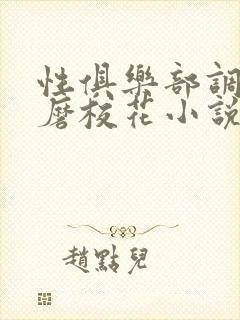 性俱樂部調
磨校花小說
趙點兒